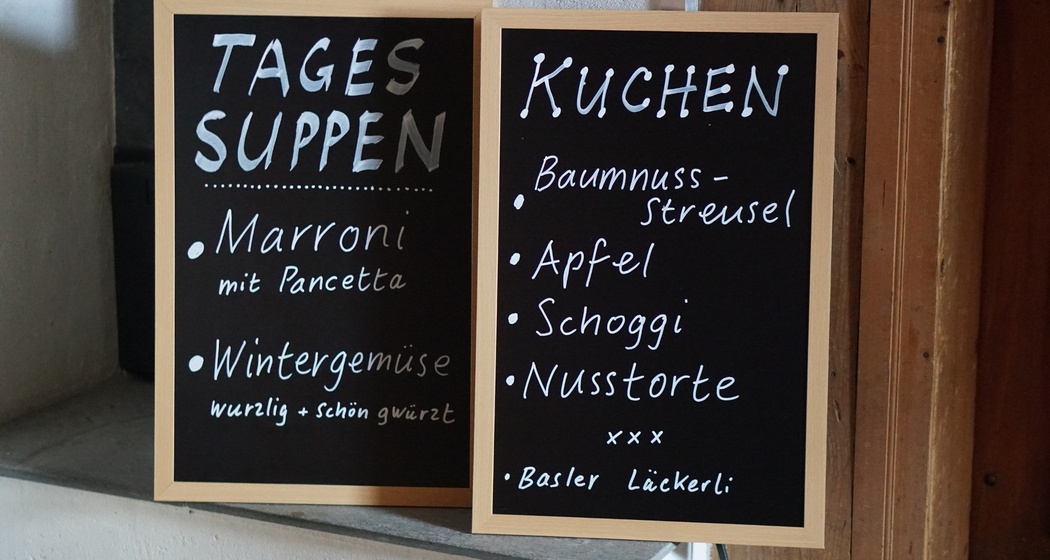 TAGES
SUPPEN
• Marroni
mit Pancetta
• Wintergemüse
wurzlig + schön gwürzt
KUCHEN
• Baumnuss-
Streusel
• Apfel
• Schoggi
• Nusstorte
xxx
• Basler Läckerli